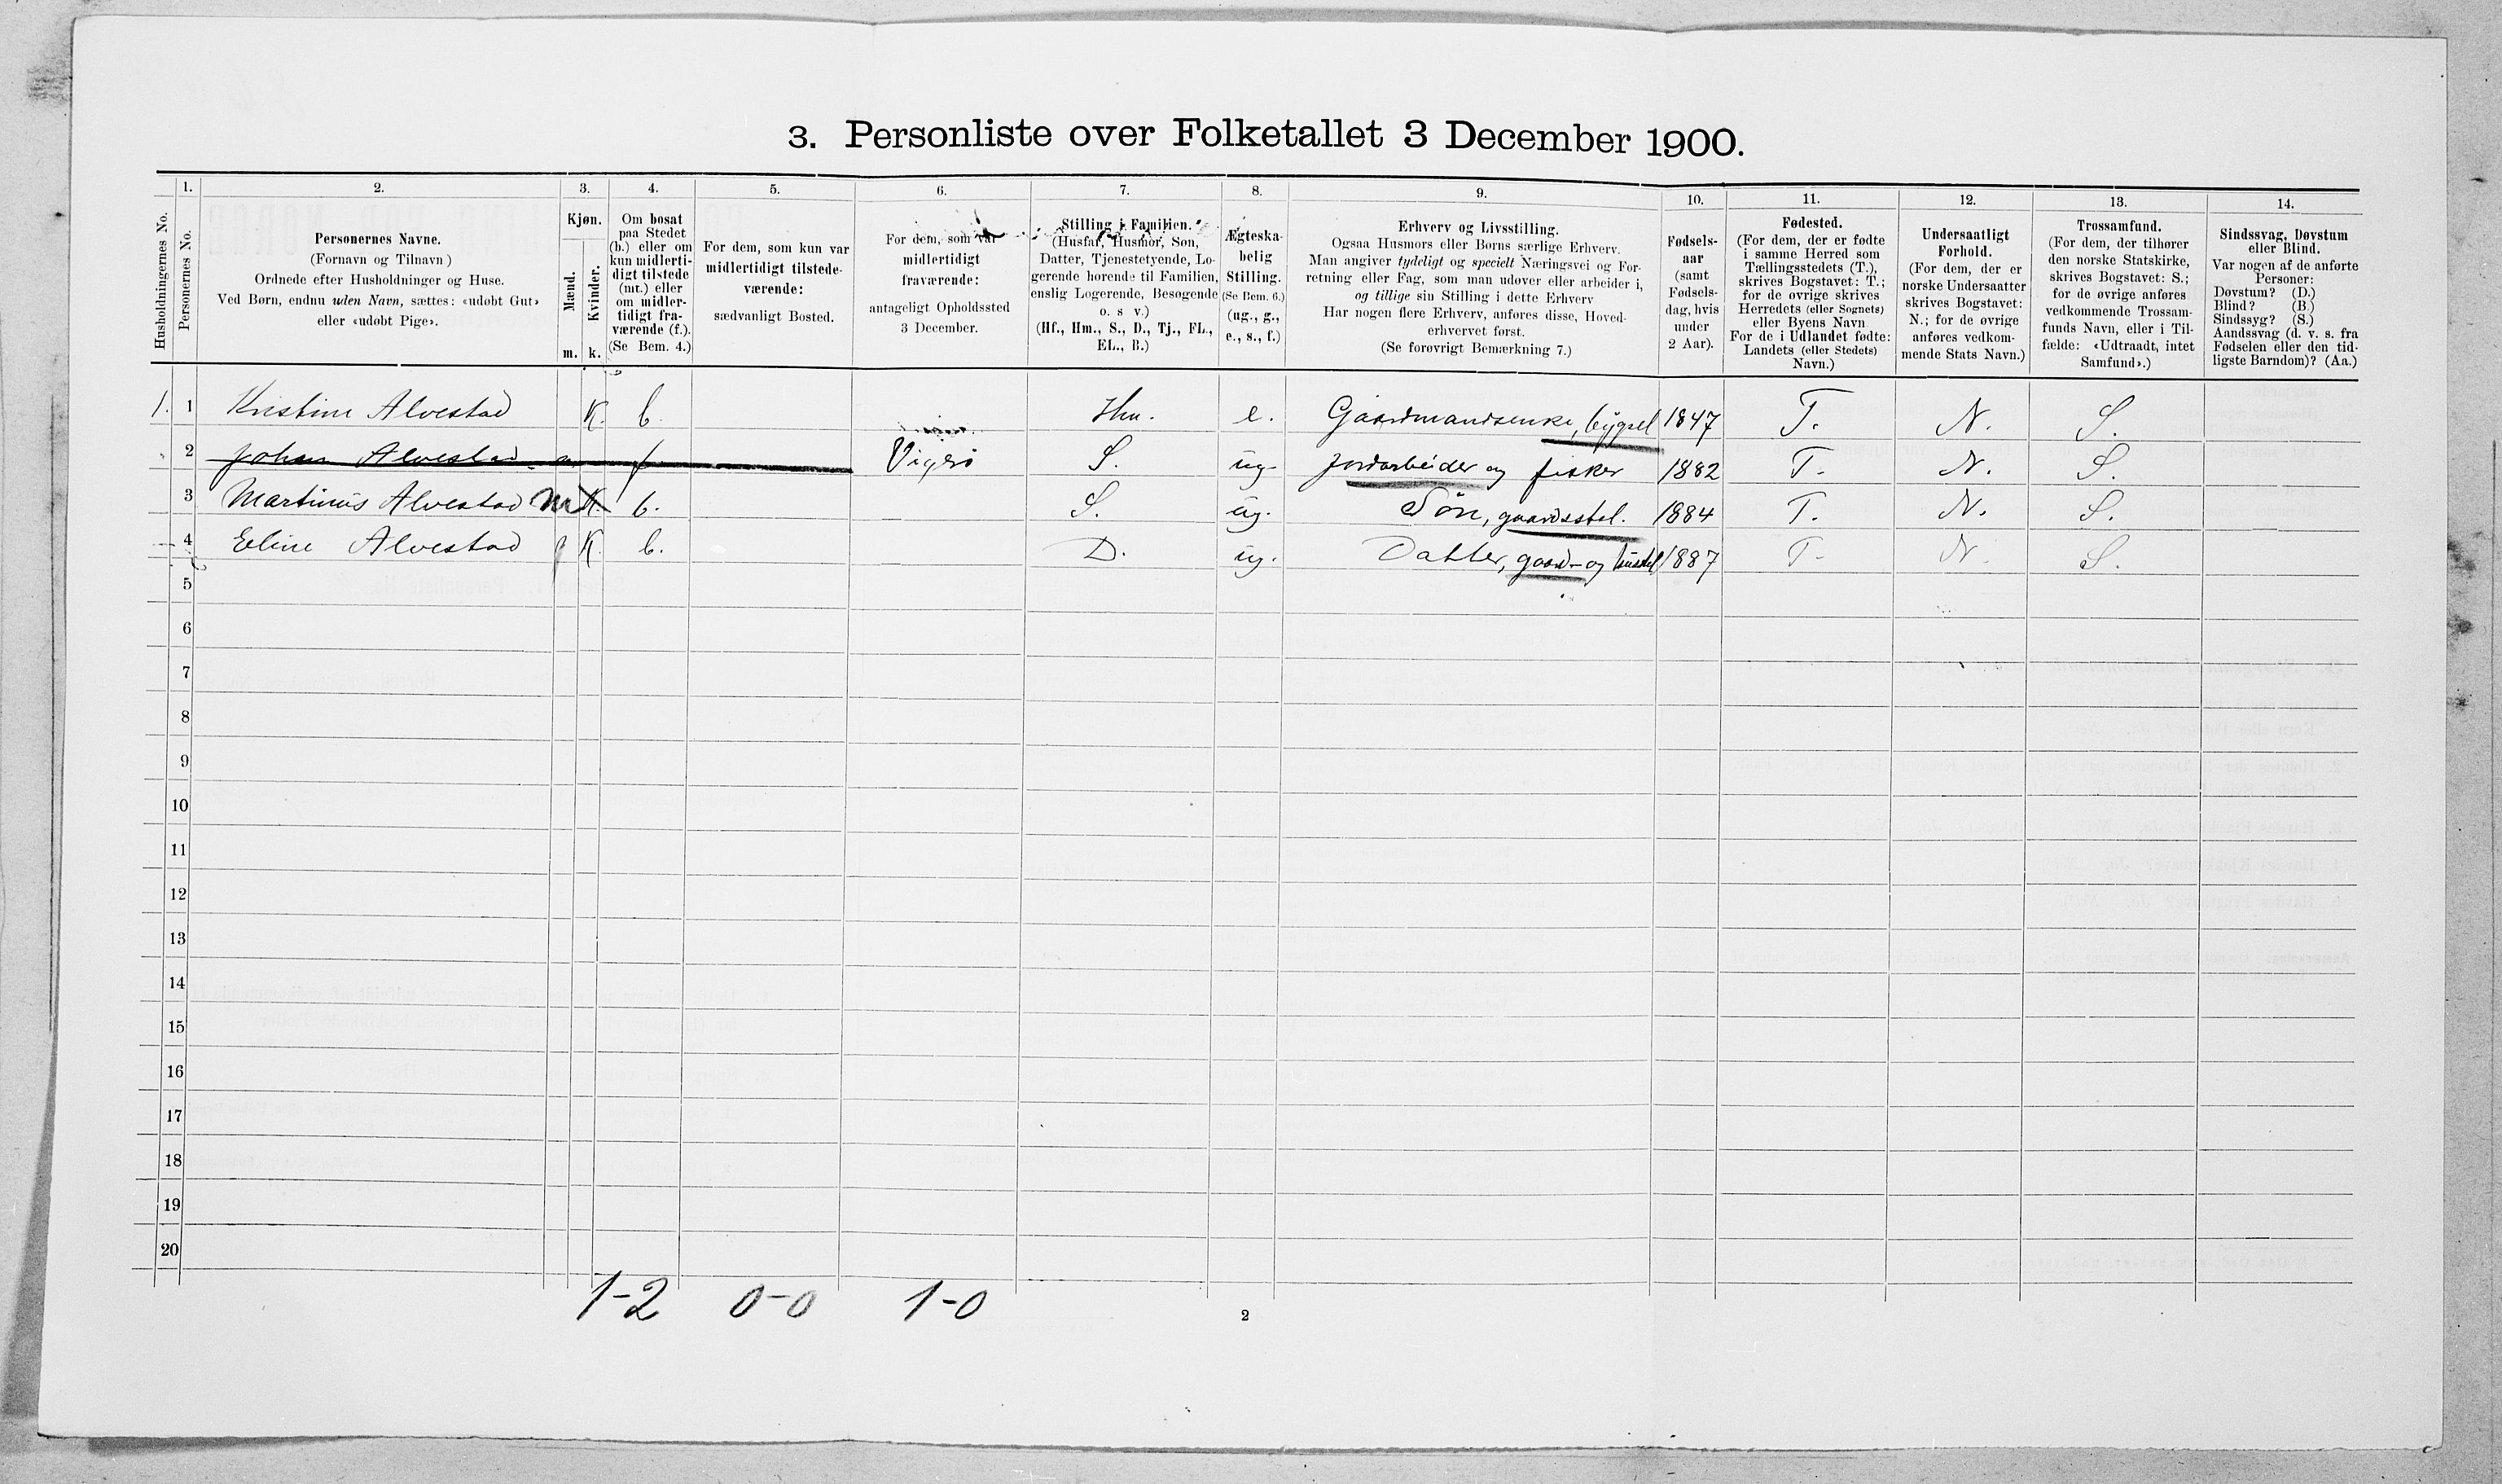 3. Personliste over Folketallet 3 December 1900.
Husholdningernes No.
1.
Personernes No.
2.
Personernes Navne.
(Fornavn og Tilnavn)
Ordnede efter Husholdninger og Huse.
Ved Børn, endnu uden Navn, sættes: «udøbt Gut»
eller «udøbt Pige».
3.
Kjøn.
Mænd.
Kvinder.
m. k.
4.
Om bosat
paa Stedet
(b.) eller om
kun midlerti-
digt tilstede
(mt.) eller
om midler-
tidigt fra-
værende (f.).
(Se Bem. 4.)
5.
For dem, som kun var
midlertidigt tilstede-
værende:
sædvanligt Bosted.
6.
For dem, som var
midlertidigt
fraværende:
antageligt Opholdssted
3 December.
7.
Stilling i Familien.
(Husfar, Husmor, Søn,
Datter, Tjenestetyende, Lo-
gerende hørende til Familien,
enslig Logerende, Besøgende
o. s v.)
(Hf., Hm., S., D., Tj., FL.,
EL., B.)
8.
Ægteska-
belig
Stilling.
(Se Bem. 6.)
(ug., g.,
e., s., f.)
9.
Erhverv og Livsstilling.
Ogsaa Husmors eller Børns særlige Erhverv.
Man angiver tydeligt og specielt Næringsvei og For-
retning eller Fag, som man udøver eller arbeider i,
og tillige sin Stilling i dette Erhverv
Har nogen flere Erhverv, anføres disse, Hoved-
erhvervet først.
(Se forøvrigt Bemærkning 7.)
10.
Fødsels-
aar
(samt
Fødsels-
dag, hvis
under
2 Aar).
11.
Fødested.
(For dem, der er fødte
i samme Herred som
Tællingsstedets (T.),
skrives Bogstavet: T.;
for de øvrige skrives
Herredets (eller Sognets)
eller Byens Navn
For de i Udlandet fødte:
Landets (eller Stedets)
Navn.)
12.
Undersaatligt
Forhold.
(For dem, der er
norske Undersaatter
skrives Bogstavet:
N.; for de øvrige
anføres vedkom-
mende Stats Navn.)
13.
Trossamfund.
(For dem, der tilhører
den norske Statskirke,
skrives Bogstavet: S.;
for de øvrige anføres
vedkommende Trossam-
funds Navn, eller i Til-
fælde: «Udtraadt, intet
Samfund».)
14.
Sindssvag, Døvstum
eller Blind.
Var nogen af de anførte
Personer:
Døvstum? (D.)
Blind? (B.)
Sindssyg? (S.)
Aandssvag (d. v. s. fra
Fødselen eller den tid-
ligste Barndom)? (Aa.)
1. 1 Kristine Alvestad K. b. Hm. e. Gaardmandsenke, bygsel 1847 T. N. S.
2 Johan Alvestad m f Vigsø S. ug. Jordarbeider og fisker 1882 T. N. S.
3 Martinus Alvestad m K. b. S. ug. Søn, gaardsstel. 1884 T. N. S.
4 Eline Alvestad K. b. D. ug. Datter, gaard- og husstel 1887 T. N. S.
5
6
7
8
9
10
11
12
13
14
15
16
17
18
19
20
1-2 0-0 1-0
2